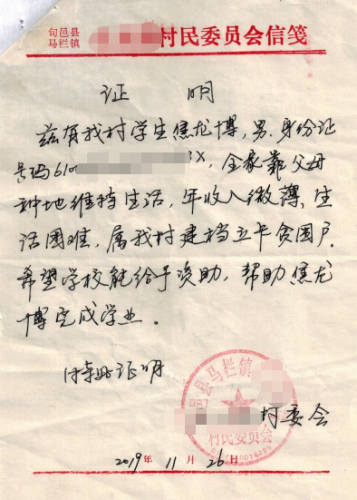 旬邑县
马栏镇
村民委员会信笺
证 明
兹有我村学生焦龙博,男,身份证
号码610 X,全家靠父母
种地维持生活,年收入微薄,生
活困难,属我村建档立卡贫困户,
希望学校能给予资助,帮助焦龙
博完成学业。
特此证明
县马栏镇
村委会
村民委员会
2019年11月26日